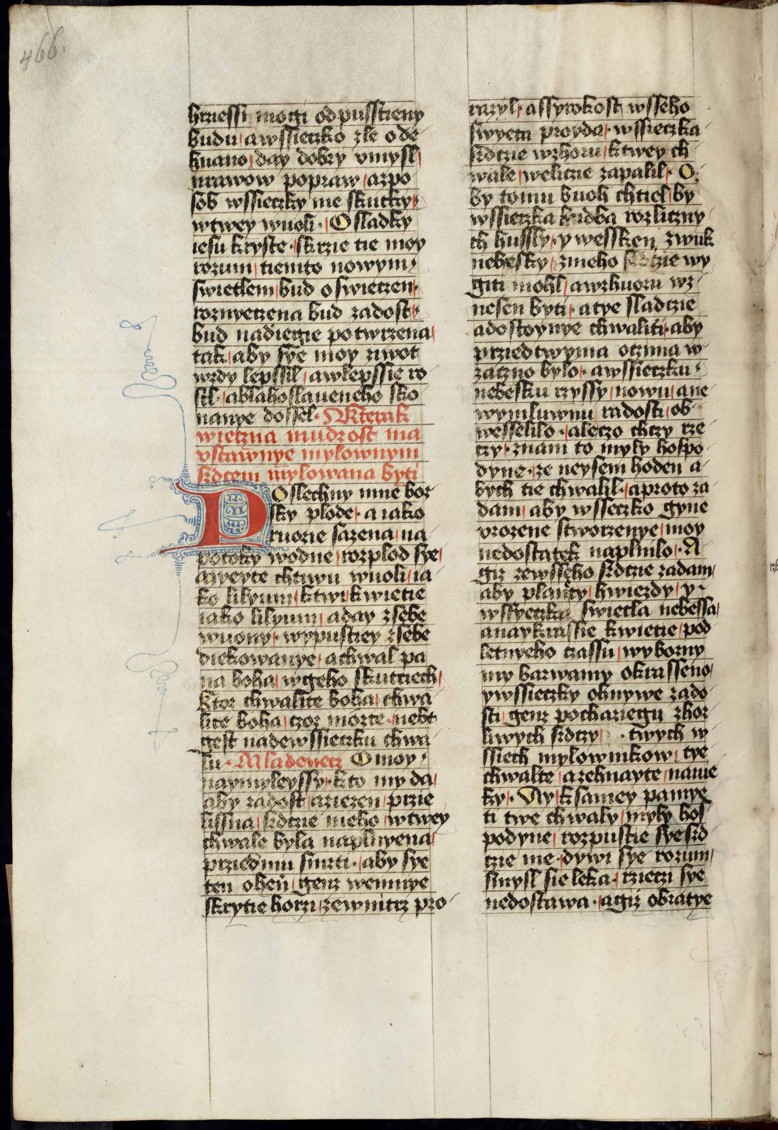 466.
hrziessi mogi odpusstieny
budu a wssieczko zle ode
hnano day dobry vmysl
mrawow popraw a zpo
sob wssieczky me skutky
w twey wuoli · O sladky
iesu kryste · skrzie tie moy
rozum tiemto nowym
swietlem bud oswieczen
roznyeczena bud zadost
bud nadiegie potwrzena
tak aby sye moy ziwot
wzdy lepssil a w lepssie ro
stl · a blahoslaueneho sko
nanye dossel · Kterak
wieczna mudrost ma
vstawnye mylownym
srdcem mylowana byti
Poslechny mne boz
sky plode · a iako
ruozie sazena na
potoky wodne rozplod sye
aweyte chtiwu wuoli ia
ko lilyum ktwi kwietie
iako lilyum a day z sebe
wuony · wypustiey z sebe
diekowanye a chwal pa
na boha w geho skutciech
ktoz chwalite boha chwa
lite boha czoz mozte nebt
gest nade wssieczku chwa
lu · Mladenecz O moy
naymyleyssy kto my da
aby zadost a ziezen przie
lissna srdcie meho w twey
chwale byla naplnyena
przied mu smrti · aby sye
ten ohen genz wemnye
skrytie horzi zewnitrz pro
razyl · a ssyrokost wsseho
swyeta proyda wssieczka
srdcie wzhoru k twey ch
wale weliczie zapalil · O
by tomu buoh chtiel by
wssieczka hudba rozliczny
ch hussly y wessken zwuk
nebesky z meho srdcie wy
giti mohl a wzhuoru wz
nesen byti a tye sladcie
a dostoynye chwaliti aby
przied twyma oczima w
zaczno bylo · a wssieczku
nebesku rzyssy nowu a ne
wymluwnu radosti ob
wesselilo · ale czo chczy rze
czy · znam to myly hospo
dyne · ze neysem hoden a
bych tie chwalil · a proto za
dam aby wsseczko gyne
vrozene stworzenye moy
nedostatek naplnilo · A
giz ze wsseho srdcie zadam
aby planety hwiezdy y
wssyeczka swietla nebessa
a naykrassie kwietie pod
letnyeho czassu wyborny
my barwamy okrasseno
y wssieczky ohnywe zado
sti genz pochaziegu z hor
liwych srdczy twych w
ssiech mylownikow tye
chwalte a zehnayte nawie
ky · Ay k samey pamye
ti twe chwaly myly hos
podyne rozpustie sye srd
cie me · dywi sye rozum
smysl sie leka rzieczi sye
nedostawa · a giz obratye